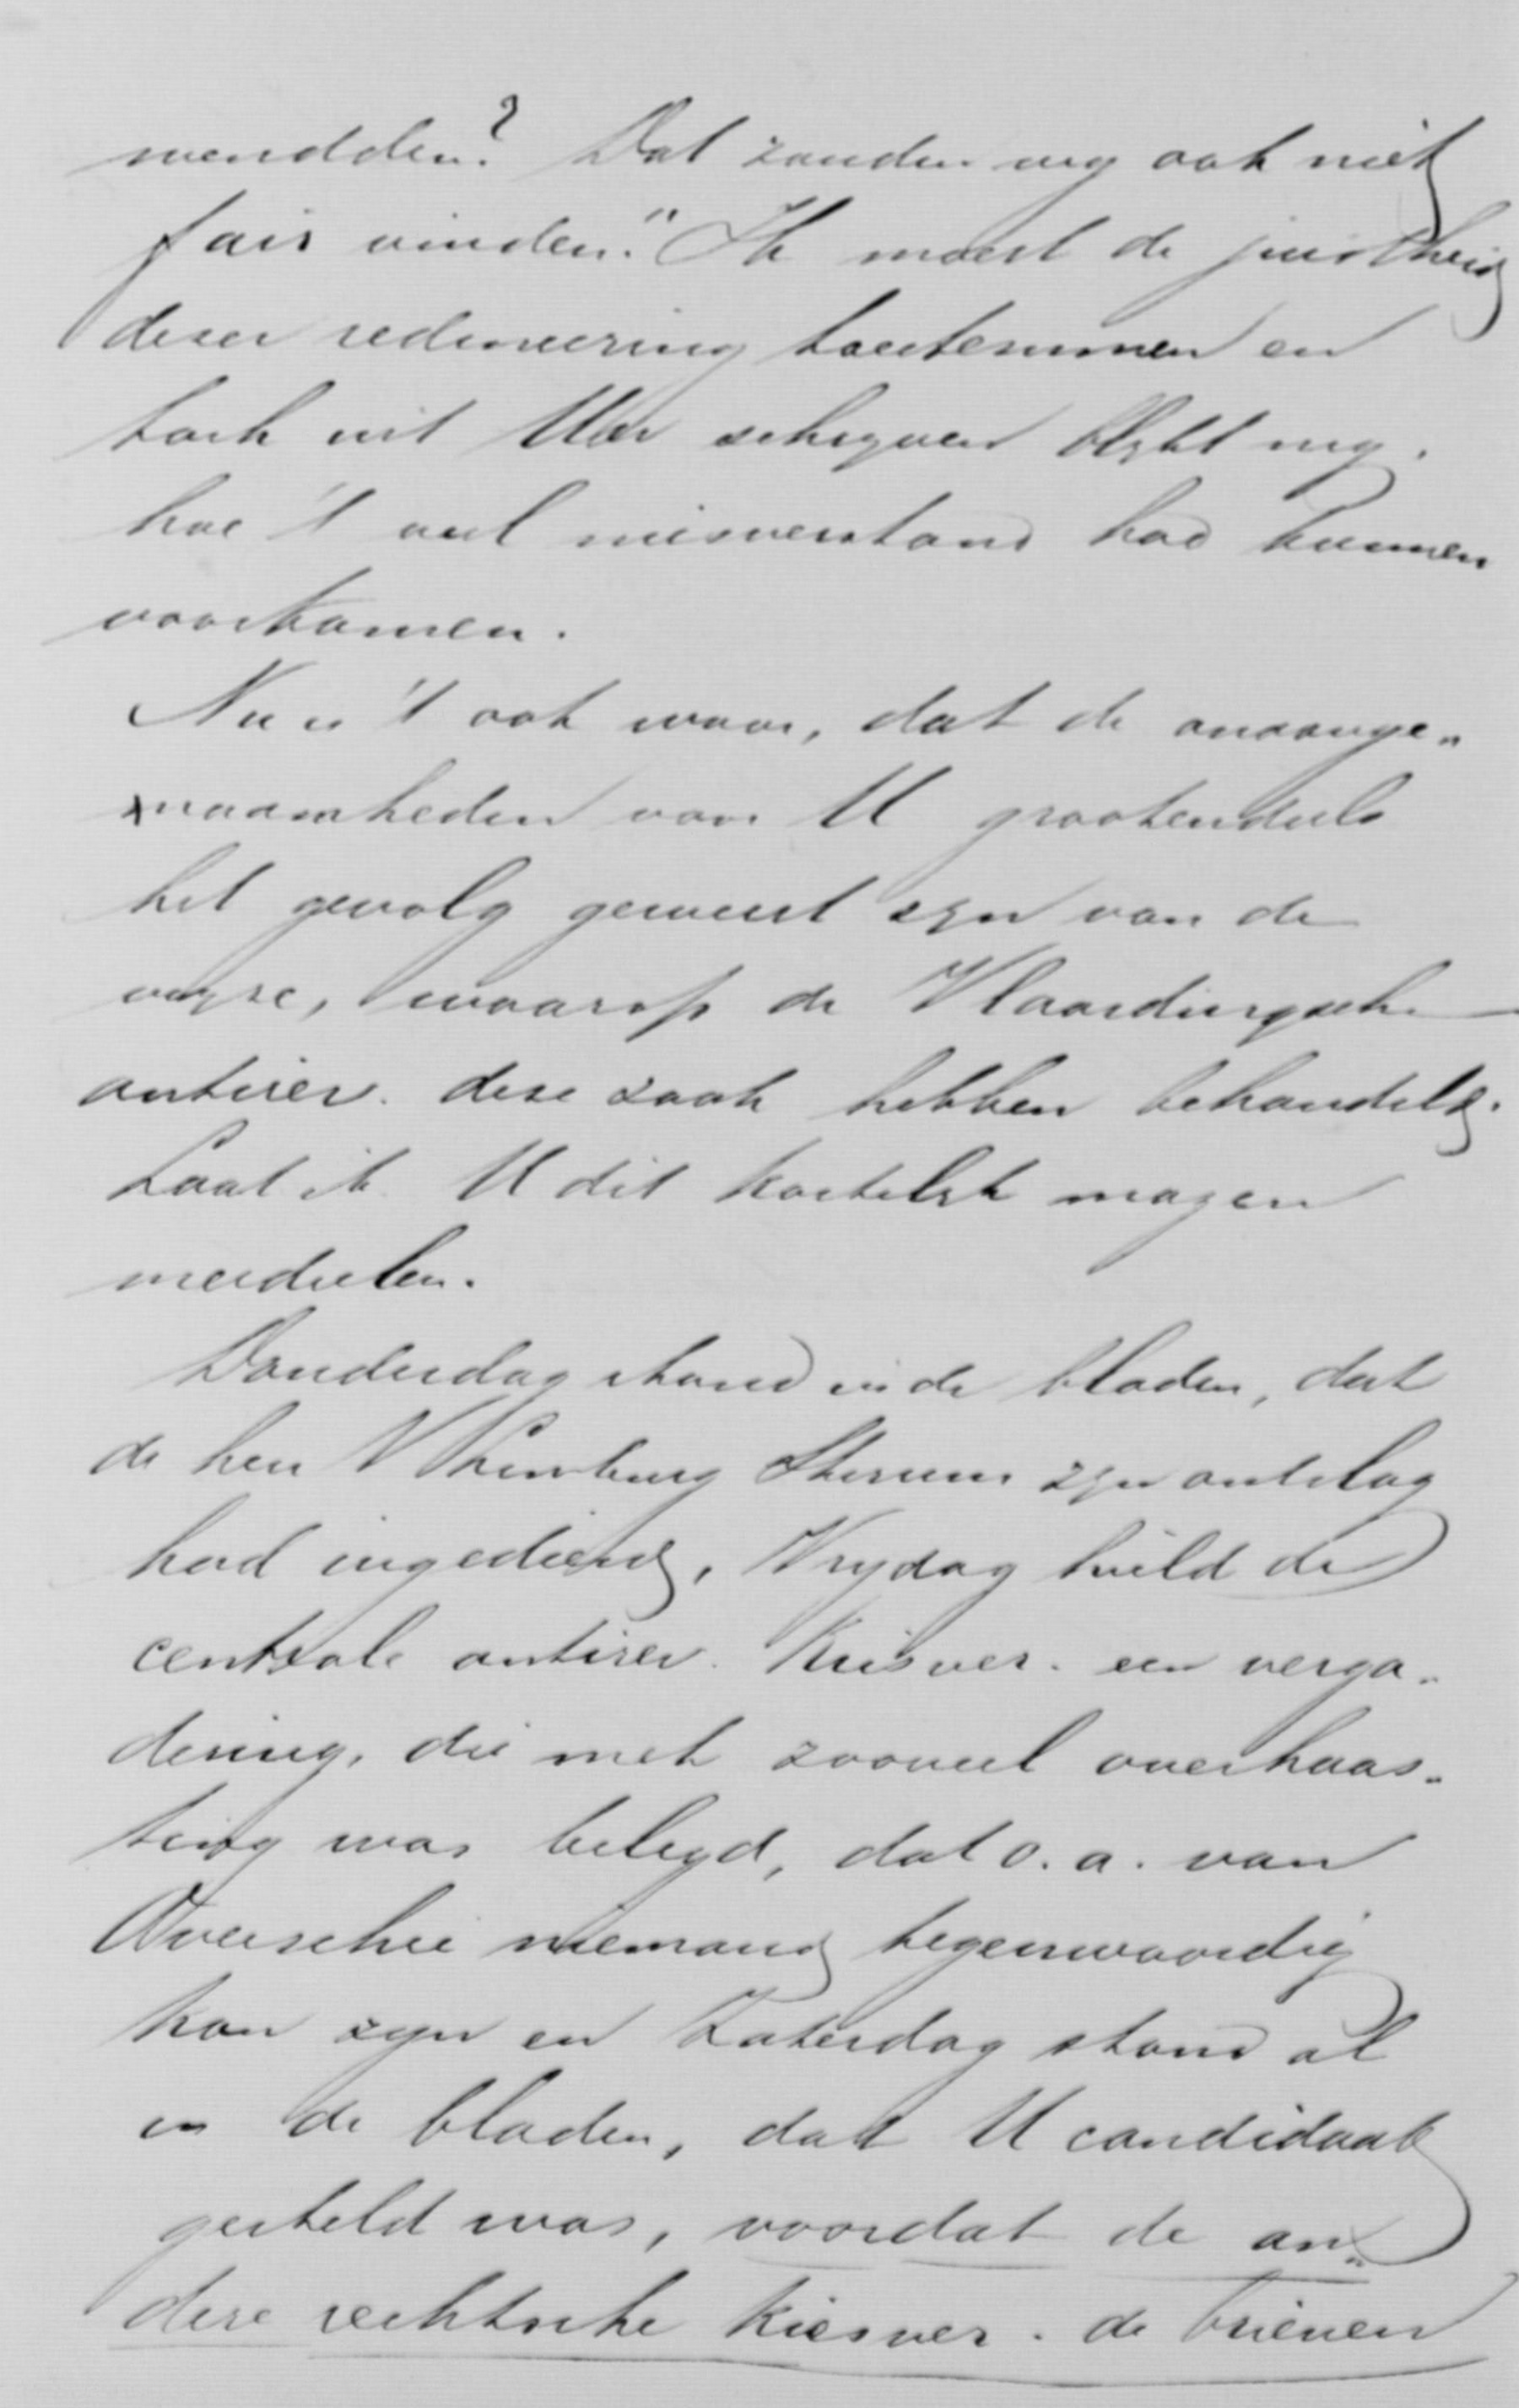 wendden? Dat zouden wy ook niet
fair vinden." Ik moest de juistheid
dezer redeneering toestemmen en
toch uit Uw schryven blykt my.
hoe 't veel misverstand had kunnen
voorkomen.
Nu is 't ook waar, dat de onaange„
naamheden voor U grootendeels
het gevolg geweest zyn van de
wyze, waarop de Vlaardingsche
antirev. deze zaak hebben behandeld.
Laat ik U dit kortelyk mogen
meedeelen.
Donderdag stond in de bladen, dat
de heer V Limburg Stirum zyn ontslag
had ingediend, Vrydag hield de
centrale antirev. Kiesver. een verga„
dering, die met zooveel overhaas„
ting was belegd, dat o.a. van
Overschie niemand tegenwoordig
kon zyn en Zaterdag stond al
in de bladen, dat U candidaat
gesteld was, voordat de an„
dere rechtsche kiesver. de brieven